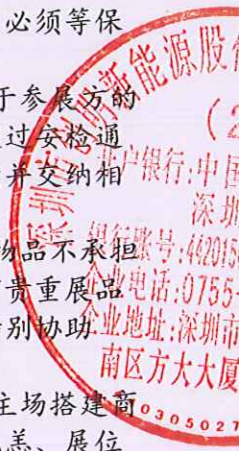 必须等保
于参展方的
过安检通
并交纳相
物品不承担
贵重展品
特别协助
主场搭建商
展位
深圳市
明新能源股
(2
开户银行:中国
深圳
银行账号:4420150
企业电话:0755-
企业地址:深圳市
南区方大大厦
0305027